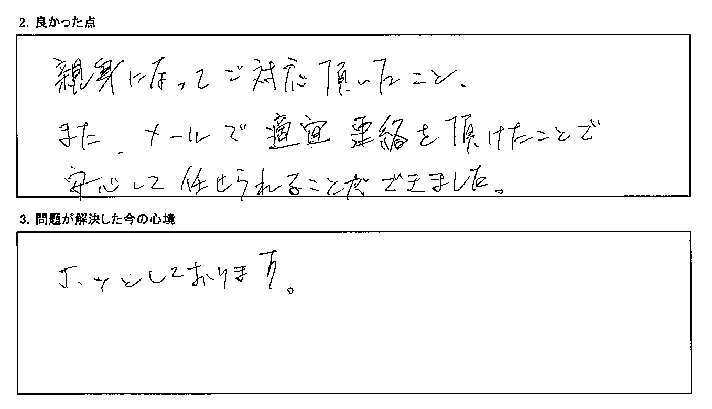 2. 良かった点
親身になってご対応頂いたこと、
また、メールで適宜連絡を頂けたことで
安心して任せられることができました。
3. 問題が解決した今の心境
ホッとしております。